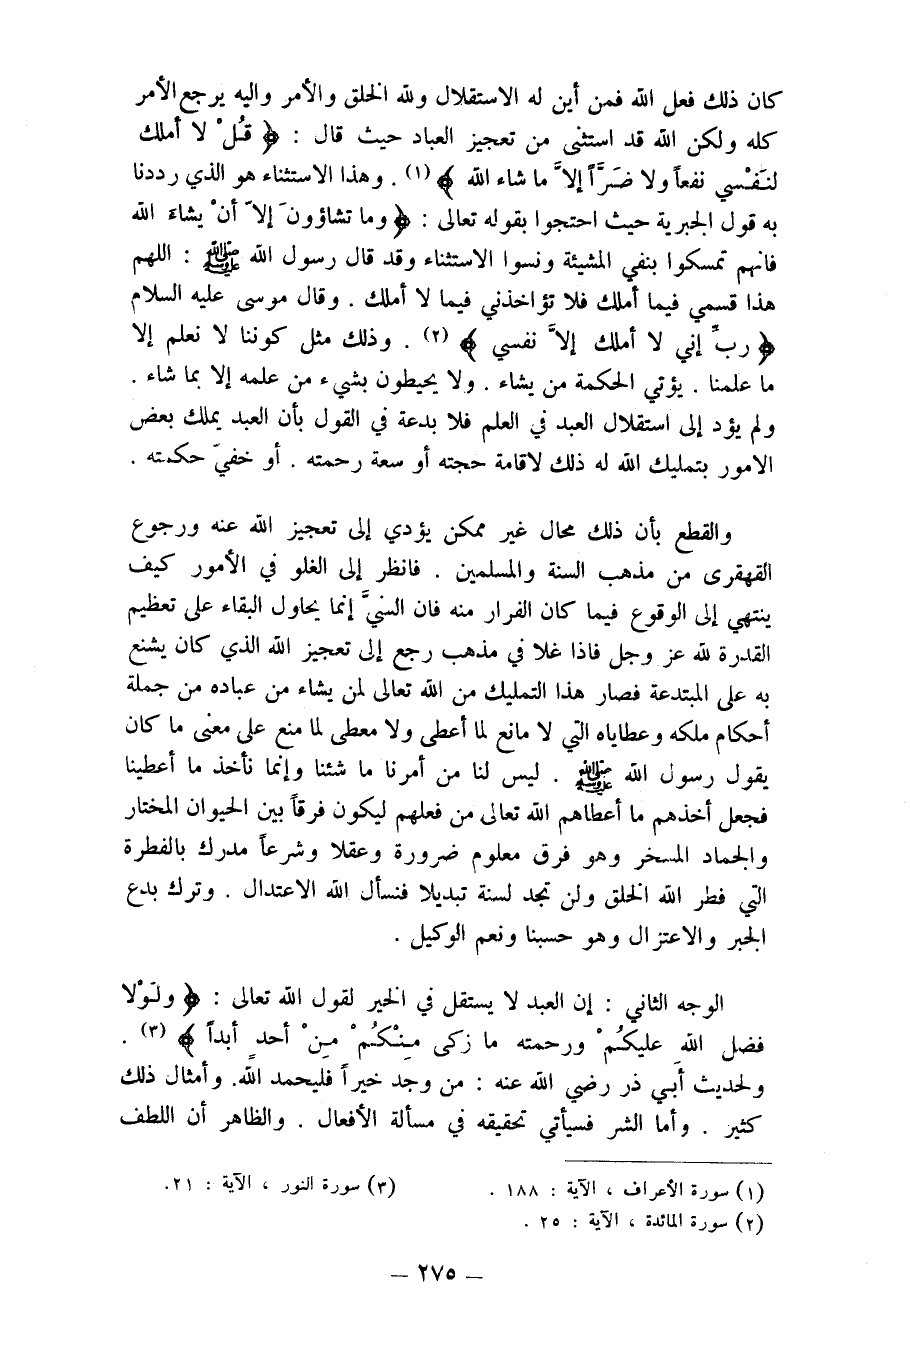 كان ذلك فعل الله فمن أين له الاستقلال ولله الخلق والأمر واليه يرجع الأمر
كله ولكن الله قد استثنى من تعجيز العباد حيث قال : ﴿ قُلْ لا أملك
لنَفْسي نفعاً ولا ضَرَّاً إلاَّ ما شاء الله ﴾ (١) . وهذا الاستثناء هو الذي رددنا
به قول الجبرية حيث احتجوا بقوله تعالى : ﴿ وما تشاؤونَ إلاّ أنْ يشاءَ الله
فانهم تمسكوا بنفي المشيئة ونسوا الاستثناء وقد قال رسول الله ﷺ : اللهم
هذا قسمي فيما أملك فلا تؤاخذني فيما لا أملك . وقال موسى عليه السلام
﴿ ربِّ إني لا أملك إلاَّ نفسي ﴾ (٢) . وذلك مثل كوننا لا نعلم إلا
ما علمنا . يؤتي الحكمة من يشاء . ولا يحيطون بشيء من علمه إلا بما شاء .
ولم يؤد إلى استقلال العبد في العلم فلا بدعة في القول بأن العبد يملك بعض
الامور بتمليك الله له ذلك لاقامة حجته أو سعة رحمته . أو خفيّ حكمته .
والقطع بأن ذلك محال غير ممكن يؤدي إلى تعجيز الله عنه ورجوع
القهقرى من مذهب السنة والمسلمين . فانظر إلى الغلو في الأمور كيف
ينتهي إلى الوقوع فيما كان الفرار منه فان السنيَّ إنما يحاول البقاء على تعظيم
القدرة لله عز وجل فاذا غلا في مذهب رجع إلى تعجيز الله الذي كان يشنع
به على المبتدعة فصار هذا التمليك من الله تعالى لمن يشاء من عباده من جملة
أحكام ملكه وعطاياه التي لا مانع لما أعطى ولا معطى لما منع على معنى ما كان
يقول رسول الله ﷺ . ليس لنا من أمرنا ما شئنا وإنما نأخذ ما أعطينا
فجعل أخذهم ما أعطاهم الله تعالى من فعلهم ليكون فرقاً بين الحيوان المختار
والجماد المسخر وهو فرق معلوم ضرورة وعقلا وشرعاً مدرك بالفطرة
التي فطر الله الخلق ولن تجد لسنة تبديلا فنسأل الله الاعتدال . وترك بدع
الجبر والاعتزال وهو حسبنا ونعم الوكيل .
الوجه الثاني : إن العبد لا يستقل في الخير لقول الله تعالى : ﴿ ولَوْلا
فضل الله عليكُمْ ورحمته ما زكى مِنْكُمْ مِنْ أحدٍ أبداً ﴾ (٣) .
ولحديث أَبي ذر رضي الله عنه : من وجد خيراً فليحمد الله. وأمثال ذلك
كثير . وأما الشر فسيأتي تحقيقه في مسألة الأفعال . والظاهر أن اللطف
(١) سورة الأعراف ، الآية : ١٨٨ .
(٣) سورة النور ، الآية : ٢١.
(٢) سورة المائدة ، الآية : ٢٥ .
– ٢٧٥ –